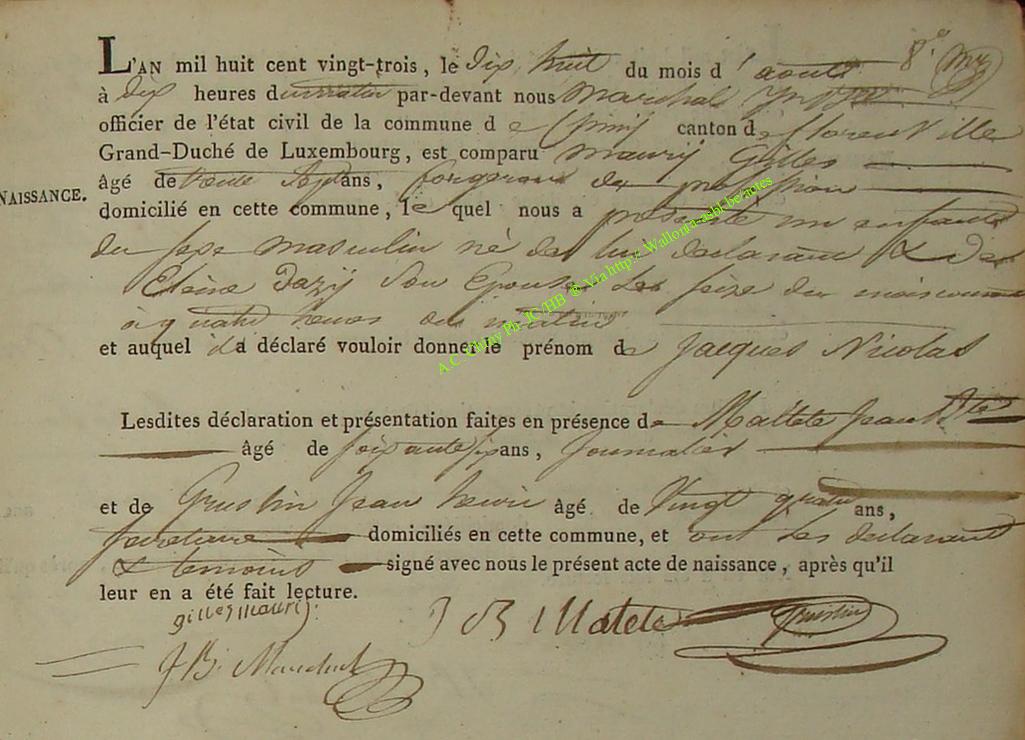 L'AN mil huit cent vingt-trois, le dix huit du mois d'aout
à dix heures du matin par-devant nous Marchal
officier de l'état civil de la commune de Chiny canton de florenville
Grand-Duché de Luxembourg, est comparu Maurÿ Gilles
NAISSANCE.
âgé de trente Sept ans, forgeron de profession
domicilié en cette commune, le quel nous a présenté un enfant
du sexe masculin né de lui déclarant & de
Dazÿ Son Epouse Le Seize du mois courant
à quatre heures du matin
et auquel il a déclaré vouloir donner le prénom de Jacques Nicolas
Lesdites déclaration et présentation faites en présence de Maltete Jean Bte
âgé de soixante six ans, Journalier
et de Grustin Jean henri âgé de Vingt quatre ans,
domiciliés en cette commune, et ont Les déclarant
& temoins signé avec nous le présent acte de naissance, après qu'il
leur en a été fait lecture.
gilles mauri.
J B Matete Grustin
J B. Marchal
A.C. Chiny Ph. JC/HB © Via http:// Wallonia-asbl.be/actes